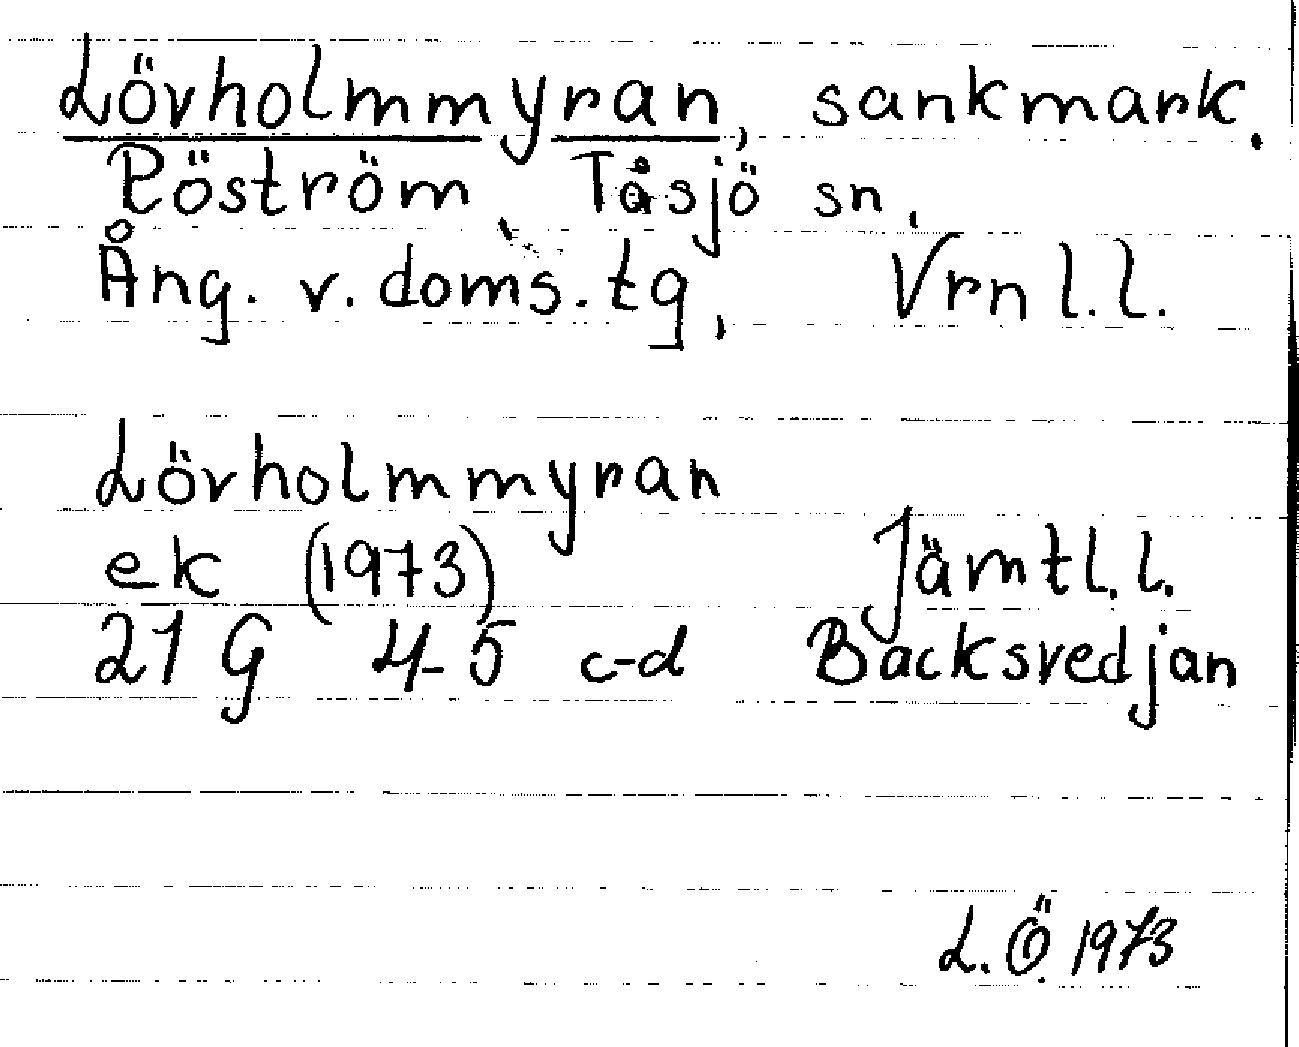 Lövholmmyran, sankmark.
Röström, Tåsjö sn,
Ång. v. doms. tg, Vrnl.l.
Lövholmmyran
ek (1973) Jämtl.l.
21 G 4-5 c-d Backsvedjan
L.Ö. 1973